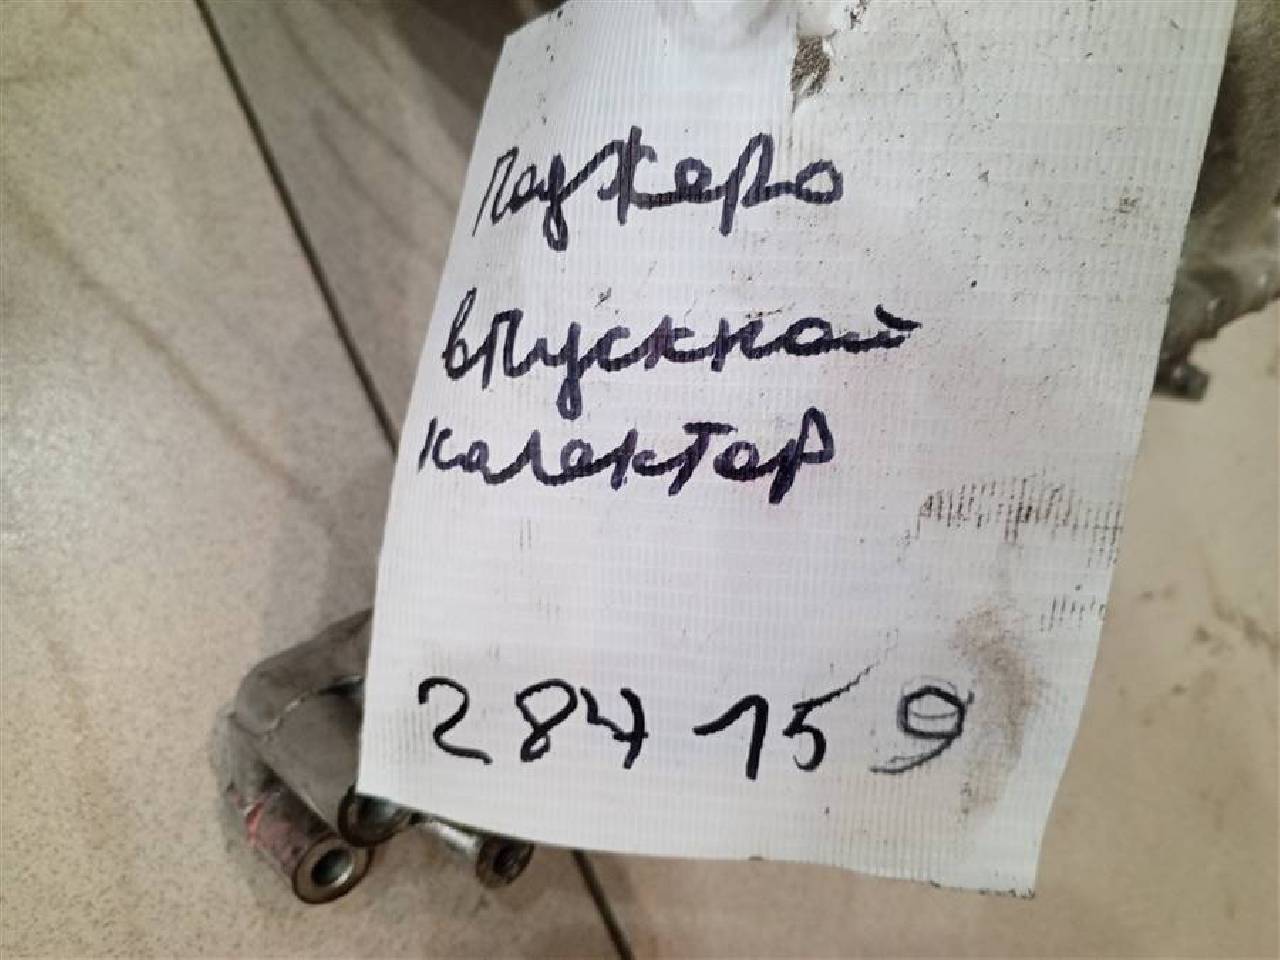 паджеро
впускной
калектор
284 159